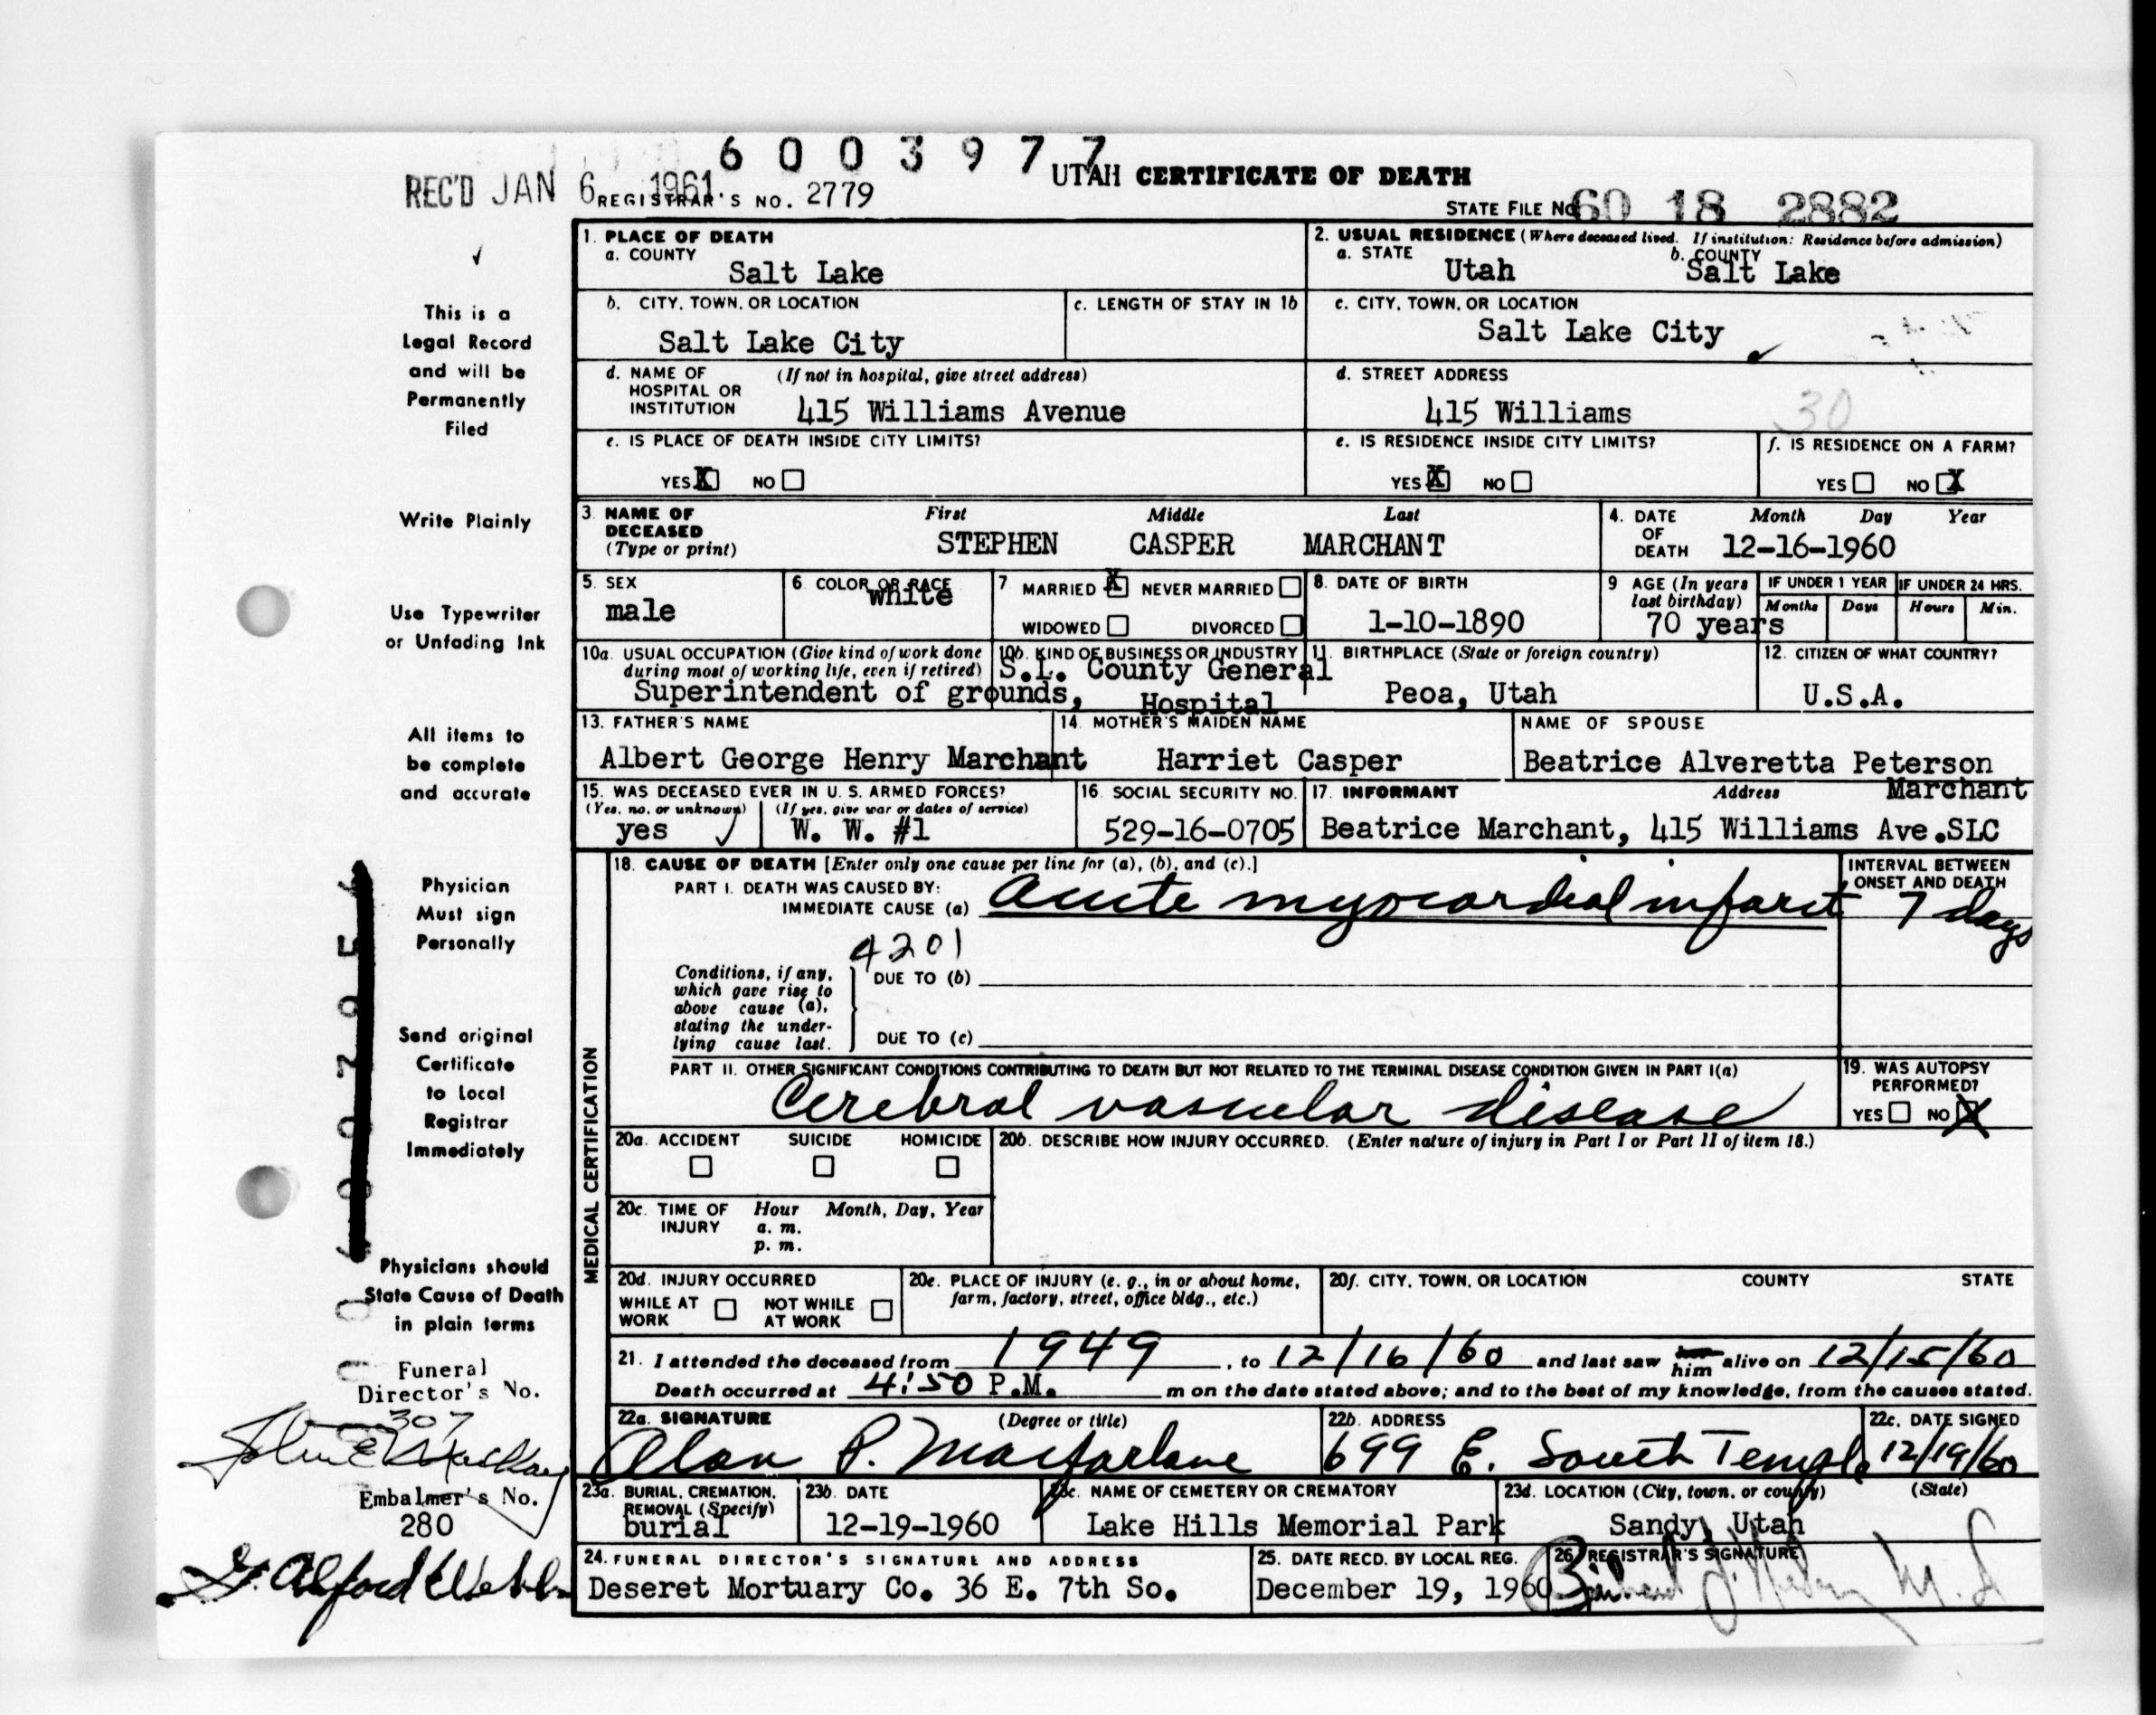 6003977
REC'D JAN 6 1961 REGISTRAR'S NO. 2779 UTAH CERTIFICATE OF DEATH
STATE FILE NO. 60 18 2882
1. PLACE OF DEATH
a. COUNTY
Salt Lake
2. USUAL RESIDENCE (Where deceased lived. If institution: Residence before admission)
a. STATE Utah b. COUNTY Salt Lake
b. CITY, TOWN, OR LOCATION
Salt Lake City
c. LENGTH OF STAY IN 1b
c. CITY, TOWN, OR LOCATION
Salt Lake City
d. NAME OF HOSPITAL OR INSTITUTION (If not in hospital, give street address)
415 Williams Avenue
d. STREET ADDRESS
415 Williams
30
e. IS PLACE OF DEATH INSIDE CITY LIMITS?
YES X NO
e. IS RESIDENCE INSIDE CITY LIMITS?
YES X NO
f. IS RESIDENCE ON A FARM?
YES NO X
3. NAME OF DECEASED (Type or print)
First Middle Last
STEPHEN CASPER MARCHANT
4. DATE OF DEATH Month Day Year
12-16-1960
5. SEX
male
6. COLOR OR RACE
white
7 MARRIED X NEVER MARRIED
WIDOWED DIVORCED
8. DATE OF BIRTH
1-10-1890
9 AGE (In years last birthday)
70 years
IF UNDER 1 YEAR IF UNDER 24 HRS.
Months Days Hours Min.
10a. USUAL OCCUPATION (Give kind of work done during most of working life, even if retired)
Superintendent of grounds,
10b. KIND OF BUSINESS OR INDUSTRY
S.L. County General
Hospital
11. BIRTHPLACE (State or foreign country)
Peoa, Utah
12. CITIZEN OF WHAT COUNTRY?
U.S.A.
13. FATHER'S NAME
Albert George Henry Marchant
14. MOTHER'S MAIDEN NAME
Harriet Casper
NAME OF SPOUSE
Beatrice Alveretta Peterson
Marchant
15. WAS DECEASED EVER IN U. S. ARMED FORCES?
(Yes, no, or unknown) (If yes, give war or dates of service)
yes W. W. #1
16. SOCIAL SECURITY NO.
529-16-0705
17. INFORMANT Address
Beatrice Marchant, 415 Williams Ave.SLC
MEDICAL CERTIFICATION
18. CAUSE OF DEATH [Enter only one cause per line for (a), (b), and (c).]
PART I. DEATH WAS CAUSED BY:
IMMEDIATE CAUSE (a) Acute myocardial infarct
INTERVAL BETWEEN ONSET AND DEATH
7 days
4201
Conditions, if any, which gave rise to above cause (a), stating the underlying cause last.
DUE TO (b)
DUE TO (c)
PART II. OTHER SIGNIFICANT CONDITIONS CONTRIBUTING TO DEATH BUT NOT RELATED TO THE TERMINAL DISEASE CONDITION GIVEN IN PART I(a)
Cerebral vascular disease
19. WAS AUTOPSY PERFORMED?
YES NO X
20a. ACCIDENT SUICIDE HOMICIDE
20b. DESCRIBE HOW INJURY OCCURRED. (Enter nature of injury in Part I or Part II of item 18.)
20c. TIME OF INJURY Hour Month, Day, Year
a. m.
p. m.
20d. INJURY OCCURRED
WHILE AT WORK NOT WHILE AT WORK
20e. PLACE OF INJURY (e. g., in or about home, farm, factory, street, office bldg., etc.)
20f. CITY, TOWN, OR LOCATION COUNTY STATE
21. I attended the deceased from 1949, to 12/16/60 and last saw him alive on 12/15/60
Death occurred at 4:50 P.M. m on the date stated above; and to the best of my knowledge, from the causes stated.
22a. SIGNATURE (Degree or title)
Alan P. Macfarlane
22b. ADDRESS
699 E. South Temple
22c. DATE SIGNED
12/19/60
23a. BURIAL, CREMATION, REMOVAL (Specify)
burial
23b. DATE
12-19-1960
23c. NAME OF CEMETERY OR CREMATORY
Lake Hills Memorial Park
23d. LOCATION (City, town, or county) (State)
Sandy, Utah
24. FUNERAL DIRECTOR'S SIGNATURE AND ADDRESS
Deseret Mortuary Co. 36 E. 7th So.
25. DATE RECD. BY LOCAL REG.
December 19, 1960
26. REGISTRAR'S SIGNATURE
M.D.
This is a
Legal Record
and will be
Permanently
Filed
Write Plainly
Use Typewriter
or Unfading Ink
All items to
be complete
and accurate
Physician
Must sign
Personally
Send original
Certificate
to Local
Registrar
Immediately
Physicians should
State Cause of Death
in plain terms
Funeral
Director's No.
307
Embalmer's No.
280